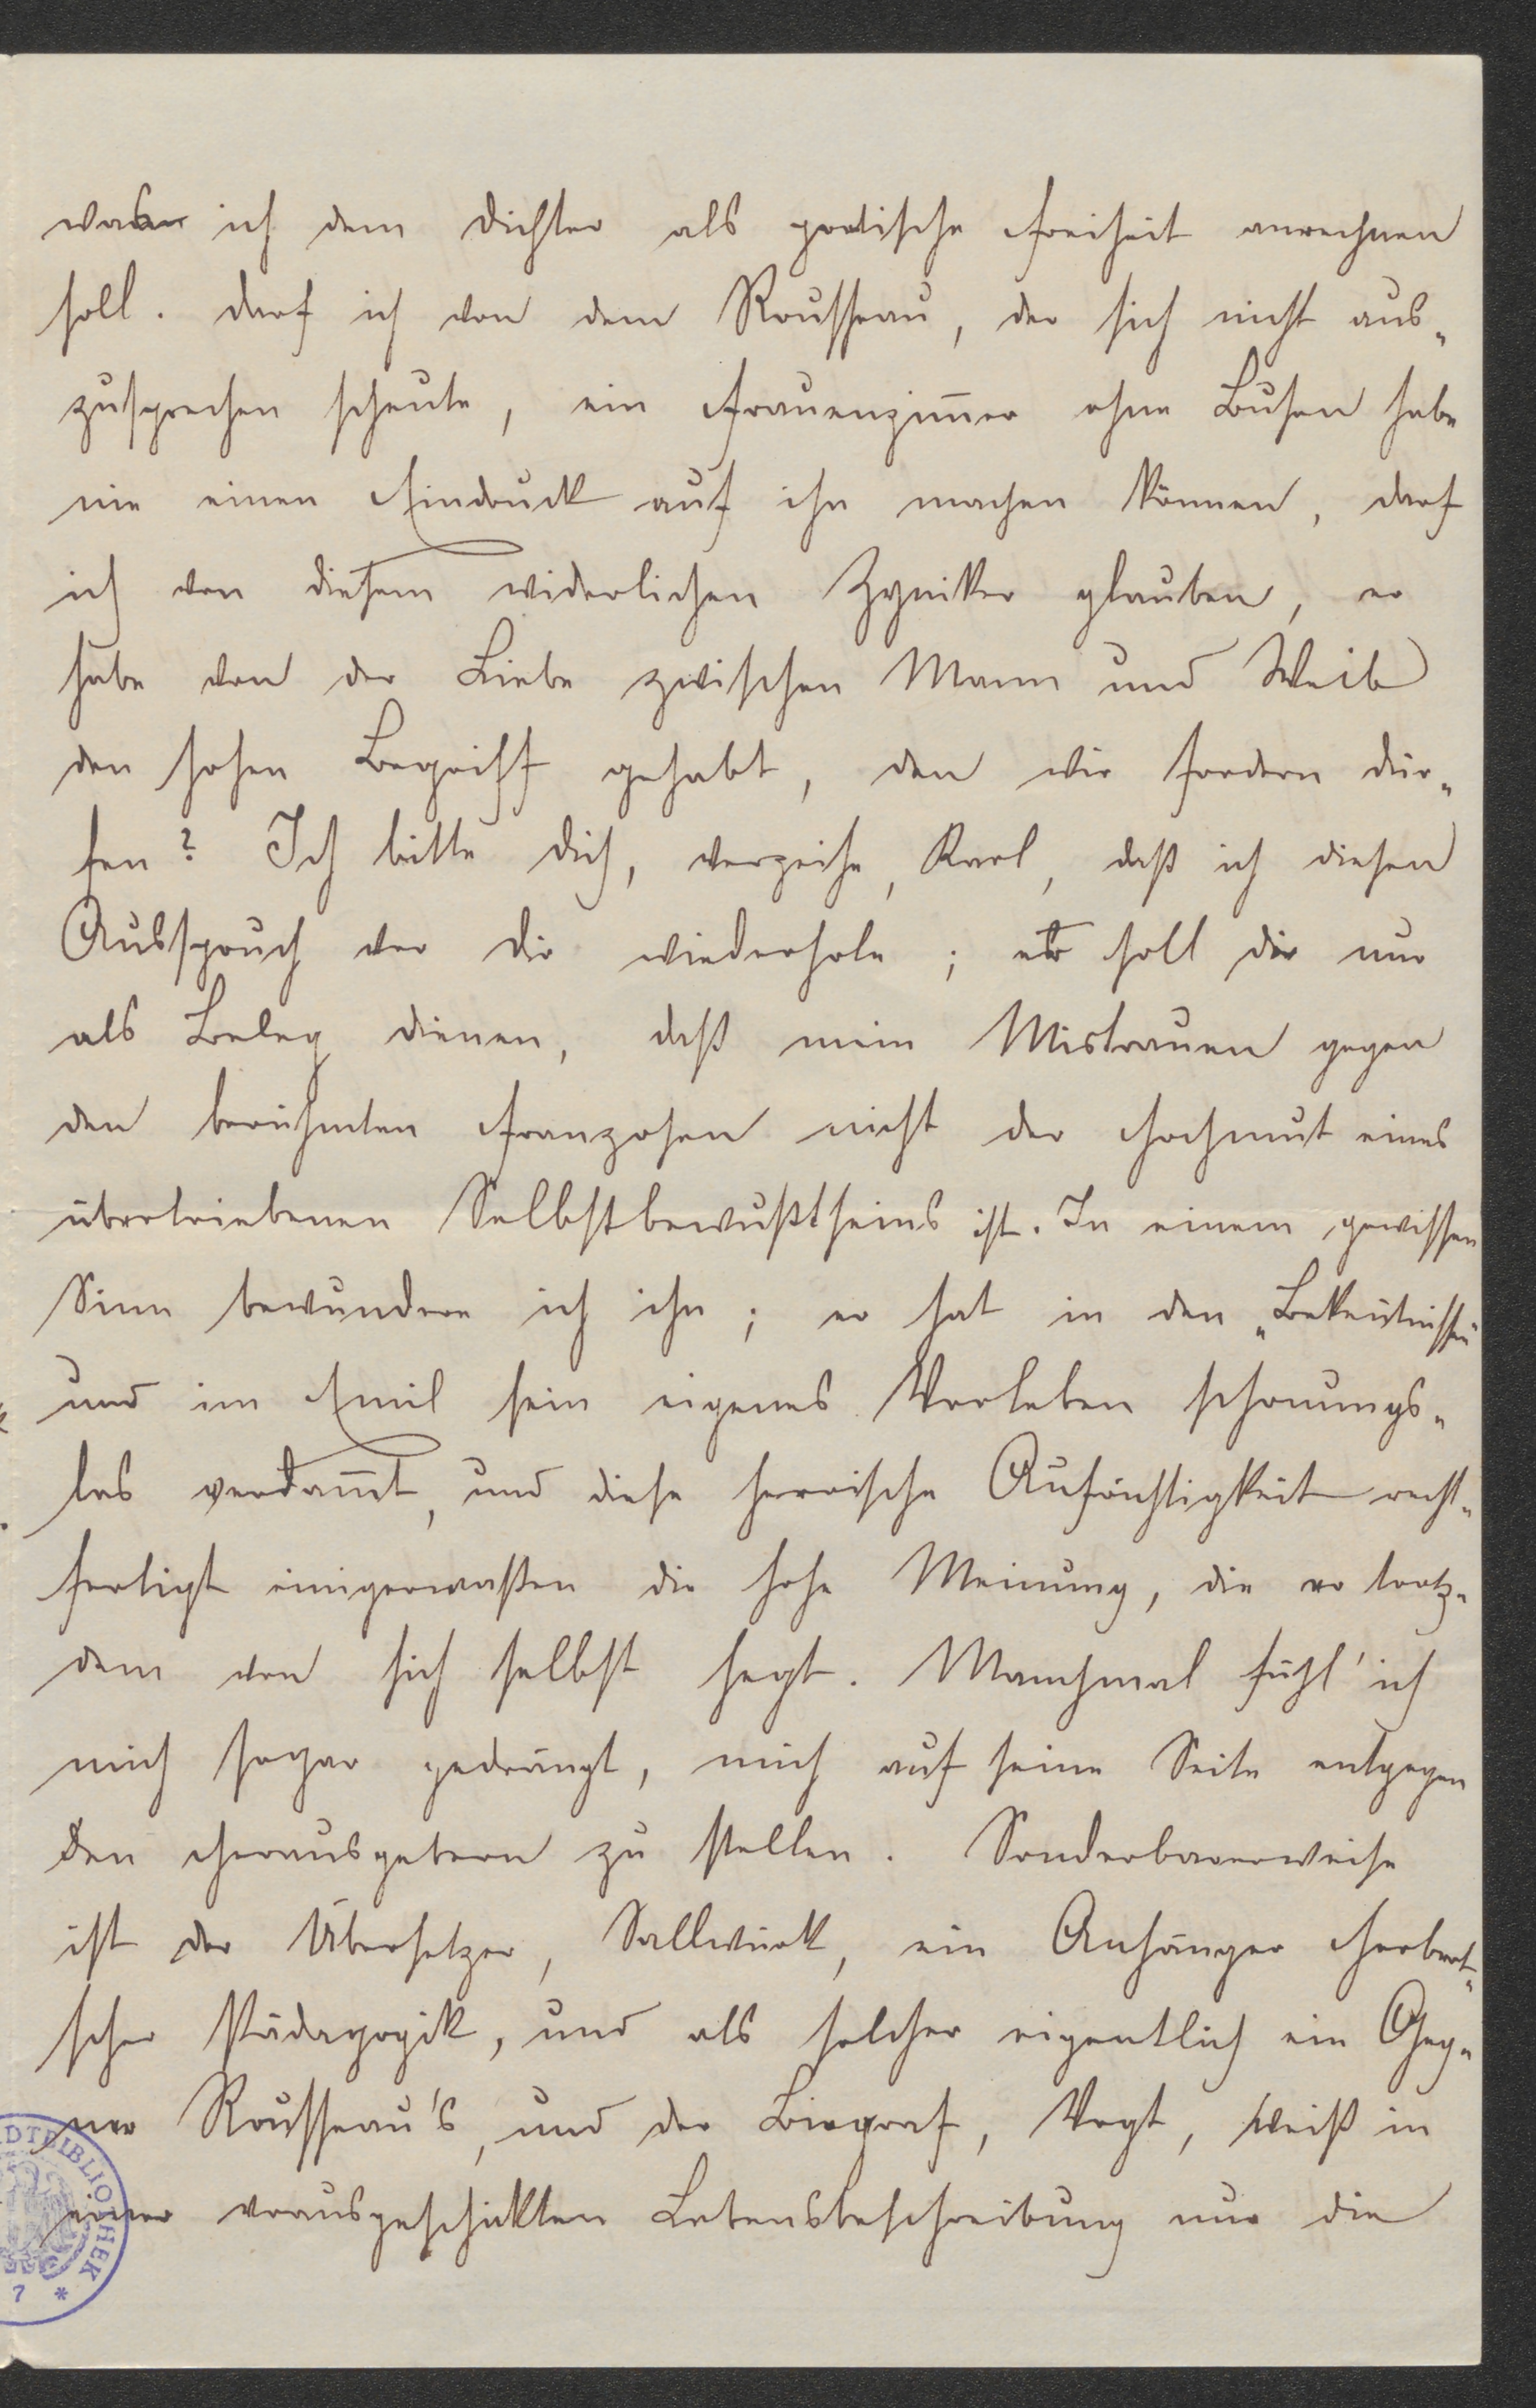 was ich dem Dichter als poetische Freiheit anrechnen
soll. Darf ich von dem Rousseau, der sich nicht aus-
zusprechen scheute, ein Frauenzim̅er ohne Busen habe
nie einen Eindruck auf ihn machen können, darf
ich von diesem widerlichen Zyniker glauben, er
habe von der Liebe zwischen Mann und Weib
den hohen Begriff gehabt, den wir fordern dür-
fen? Ich bitte dich, verzeihe, Karl, daß ich diesen
Ausspruch vor dir wiederhole; er soll dir nur
als Beleg dienen, daß mein Mistrauen gegen
den berühmten Franzosen nicht der Hochmut eines
übertriebenen Selbstbewußtseins ist. In einem gewissen
Sinn bewundere ich ihn; er hat in den „Bekeñtnissen“
und im Emil sein eigenes Vorleben schonungs-
los verdam̅t, und diese heroische Aufrichtigkeit recht-
fertigt einigermaßen die hohe Meinung, die er trotz-
dem von sich selbst hegt. Manchmal fühl' ich
mich sogar gedrängt, mich auf seine Seite entgegen
den Herausgebern zu stellen. Sonderbarerweise
ist der Übersetzer, Sallwürk, ein Anhänger Herbart-
scher Pädagogik, und als solcher eigentlich ein Geg-
ner Rousseau's, und der Biograf, Vogt, weiß in
einer vorausgeschickten Lebensbeschreibung nur die
DTBIBLIOTHEK
7 *